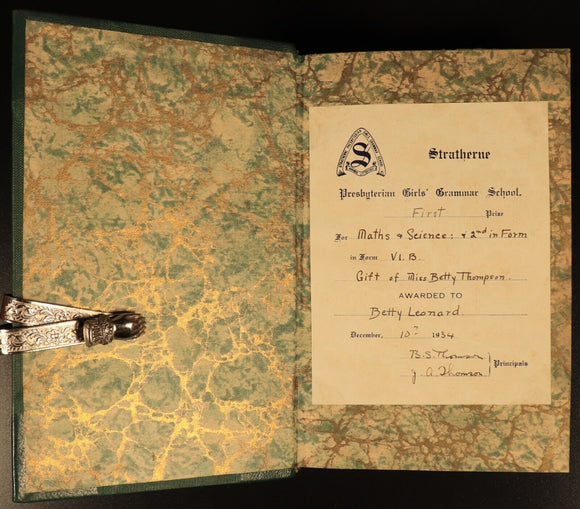 S
Stratherne
Presbyterian Girls' Grammar School.
First Prize
For Maths & Science: & 2nd in Form
in Form VI. B.
Gift of Miss Betty Thompson.
AWARDED TO
Betty Leonard.
December, 10th 1934
B.S. Thomson
J. A. Thomson
Principals